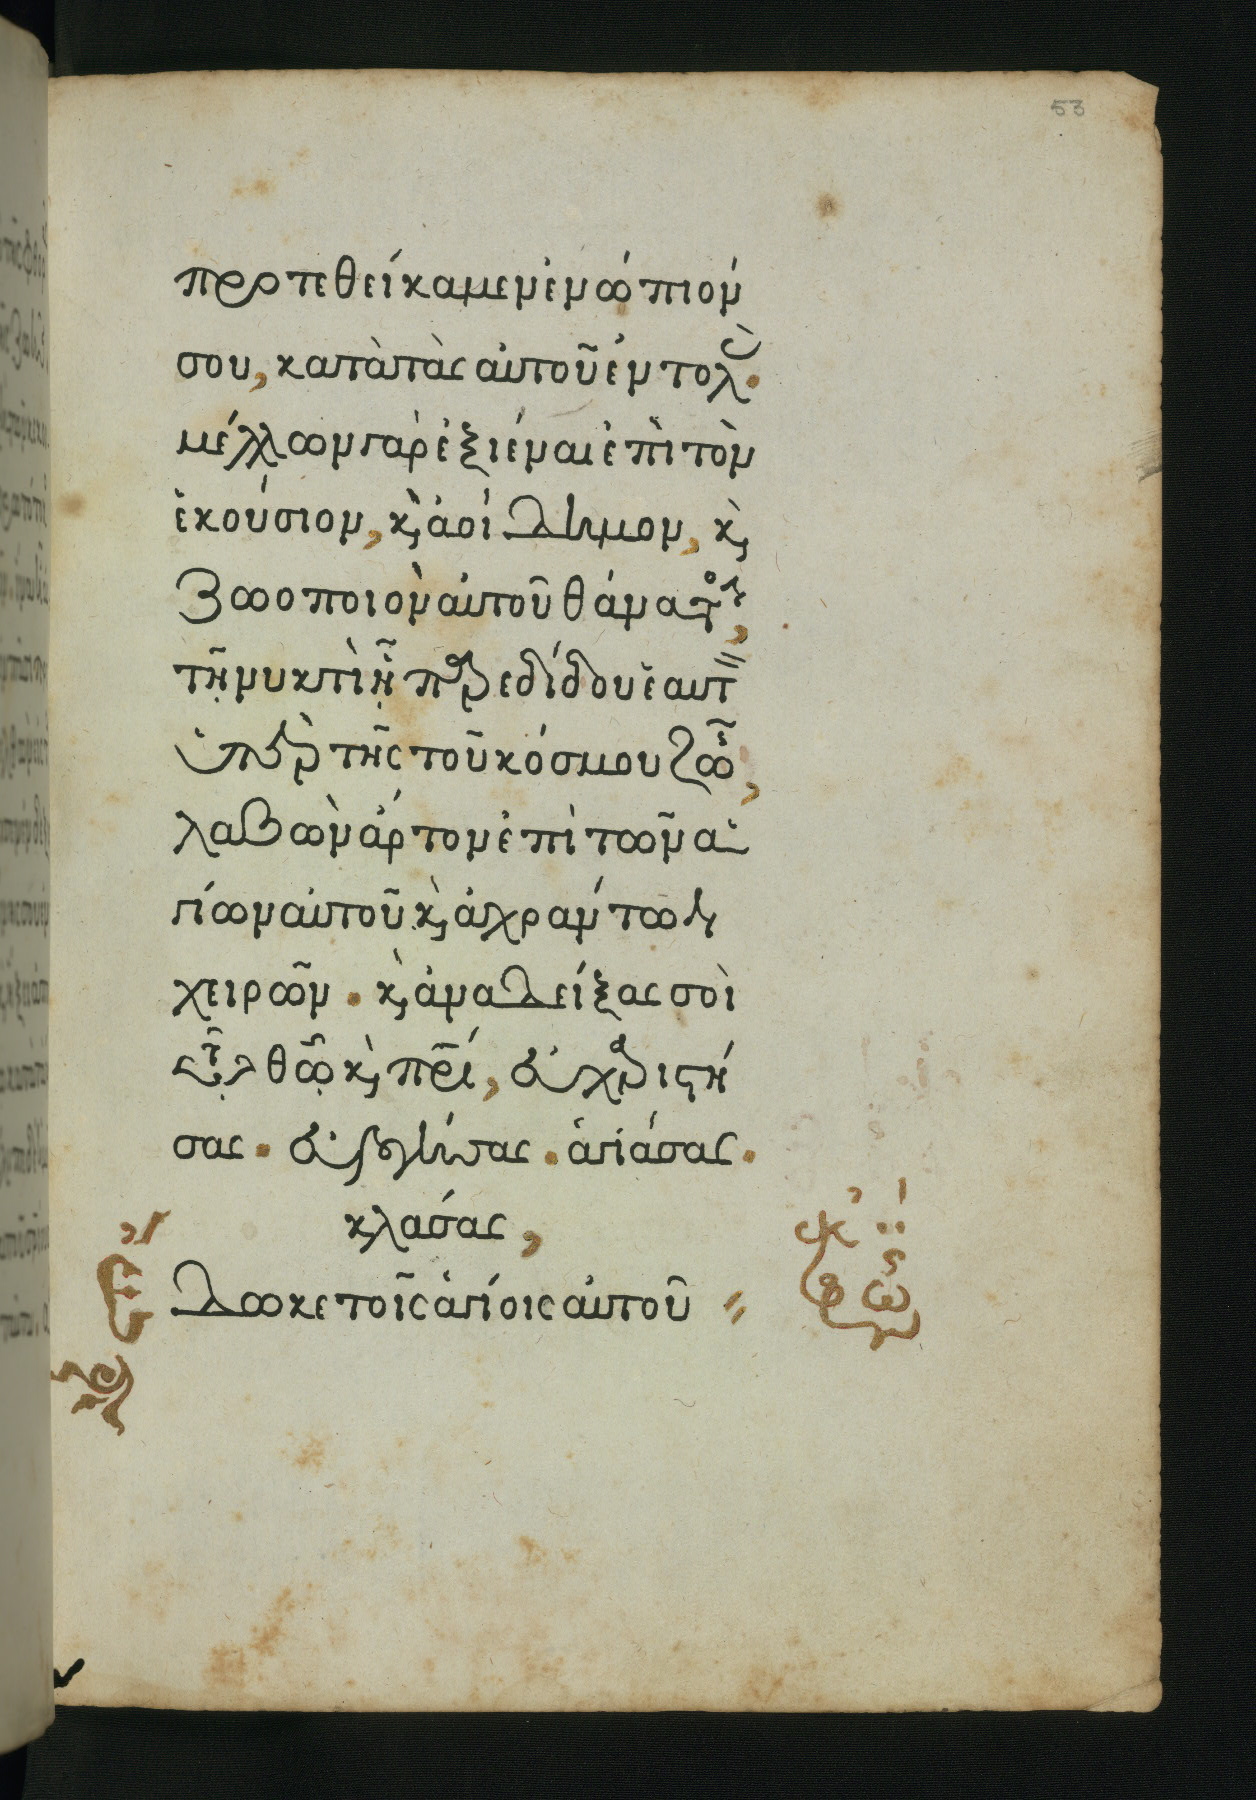 53
προτεθείκαμεν ἐνώπιόν
σου, κατὰ τὰς αὐτοῦ ἐντολ.
μέλλων γὰρ ἐξιέναι ἐπὶ τὸν
ἑκούσιον, κ̀ ἀοίδημον, κ̀
ζωοποιὸν αὐτοῦ θάνατον,
τῆ νυκτὶ ἧ παρεδίδου ἑαυτ
ὑπὲρ τῆς τοῦ κόσμου ζωῆ,
λαβὼν ἄρτον ἐπὶ τῶν ἁ
γίων αὐτοῦ κ̀ ἀχράντων
χειρῶν. κ̀ ἀναδείξας σοὶ
τῶ θῶ κ̀ πρί, εὐχαριστή
σας. εὐλογήσας. ἁγιάσας.
κλάσας,
Ἔ δωκε τοῖς ἁγίοις αὐτοῦ